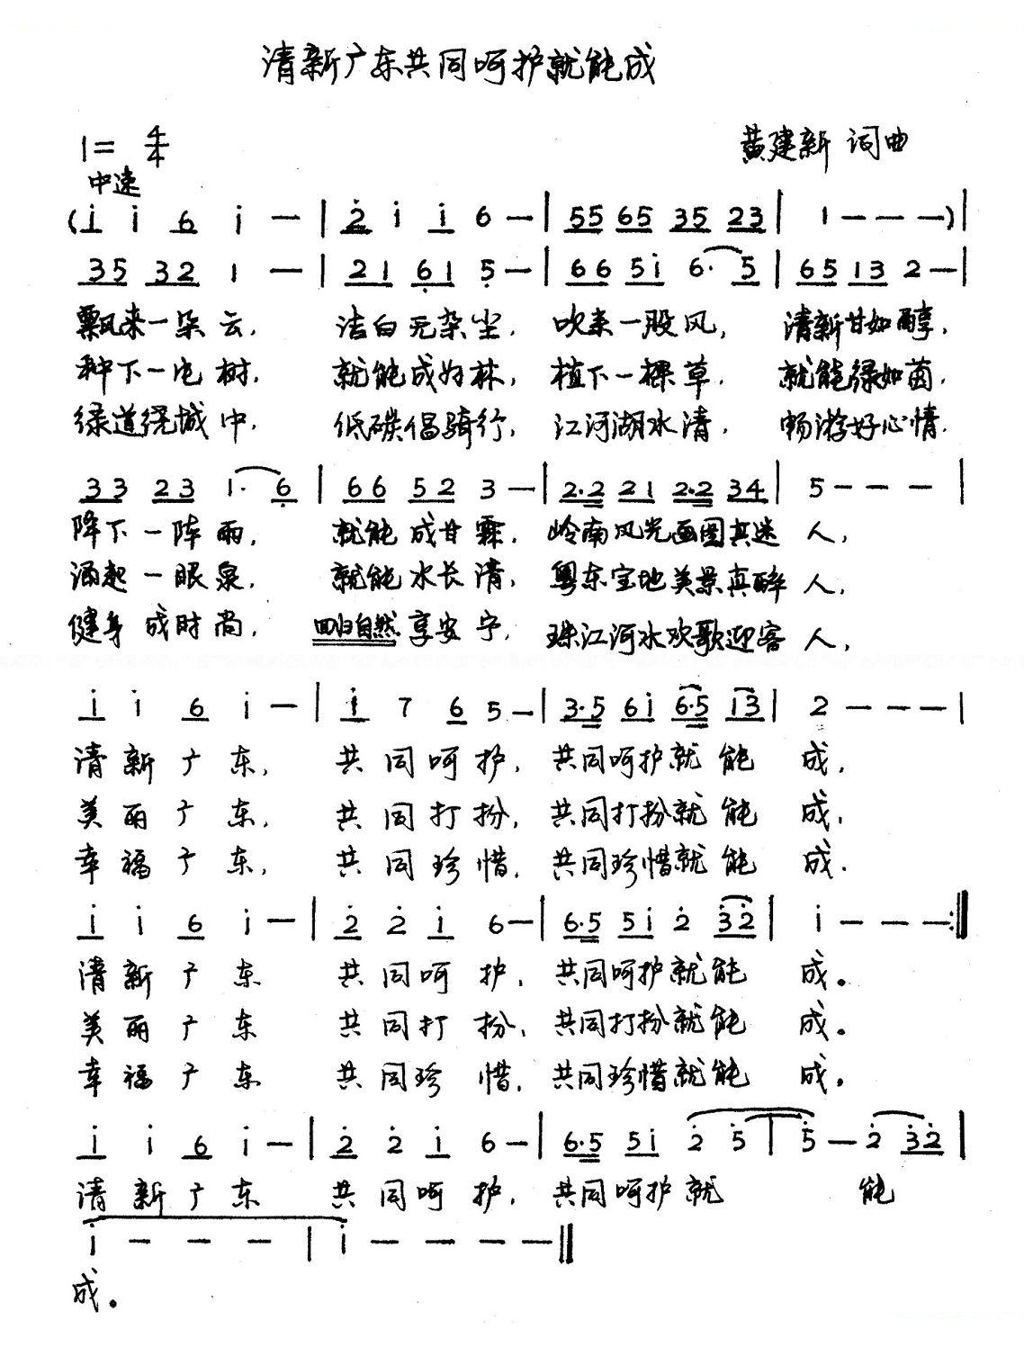 清新广东共同呵护就能成
1= 4/4
黄建新 词曲
中速
(i i 6 i — | 2 i i 6 — | 55 65 35 23 | 1 — — — ) |
35 32 1 — | 21 61 5 — | 66 5i 6· 5 | 65 13 2 — |
飘来一朵云, 洁白无杂尘, 吹来一股风, 清新甘如醇,
种下一片树, 就能成为林, 植下一棵草, 就能绿如茵,
绿道绕城中, 低碳倡骑行, 江河湖水清, 畅游好心情.
33 23 1· 6 | 66 52 3 — | 2·2 21 2·2 34 | 5 — — — |
降下一阵雨, 就能成甘霖, 岭南风光画图真迷人,
涌起一眼泉, 就能水长清, 粤东宝地美景真醉人,
健身成时尚, 回归自然享安宁, 珠江河水欢歌迎客人,
i i 6 i — | i 7 6 5 — | 3·5 6i 6·5 i3 | 2 — — — |
清新广东, 共同呵护, 共同呵护就能成,
美丽广东, 共同打扮, 共同打扮就能成,
幸福广东, 共同珍惜, 共同珍惜就能成.
i i 6 i — | 2 2 i 6 — | 6·5 5i 2 32 | i — — — :‖
清新广东 共同呵护, 共同呵护就能成。
美丽广东 共同打扮, 共同打扮就能成。
幸福广东 共同珍惜, 共同珍惜就能成。
i i 6 i — | 2 2 i 6 — | 6·5 5i 2 5 | 5 — 2 32 |
清新广东 共同呵护, 共同呵护就 能
i — — — | i — — — — ‖
成。